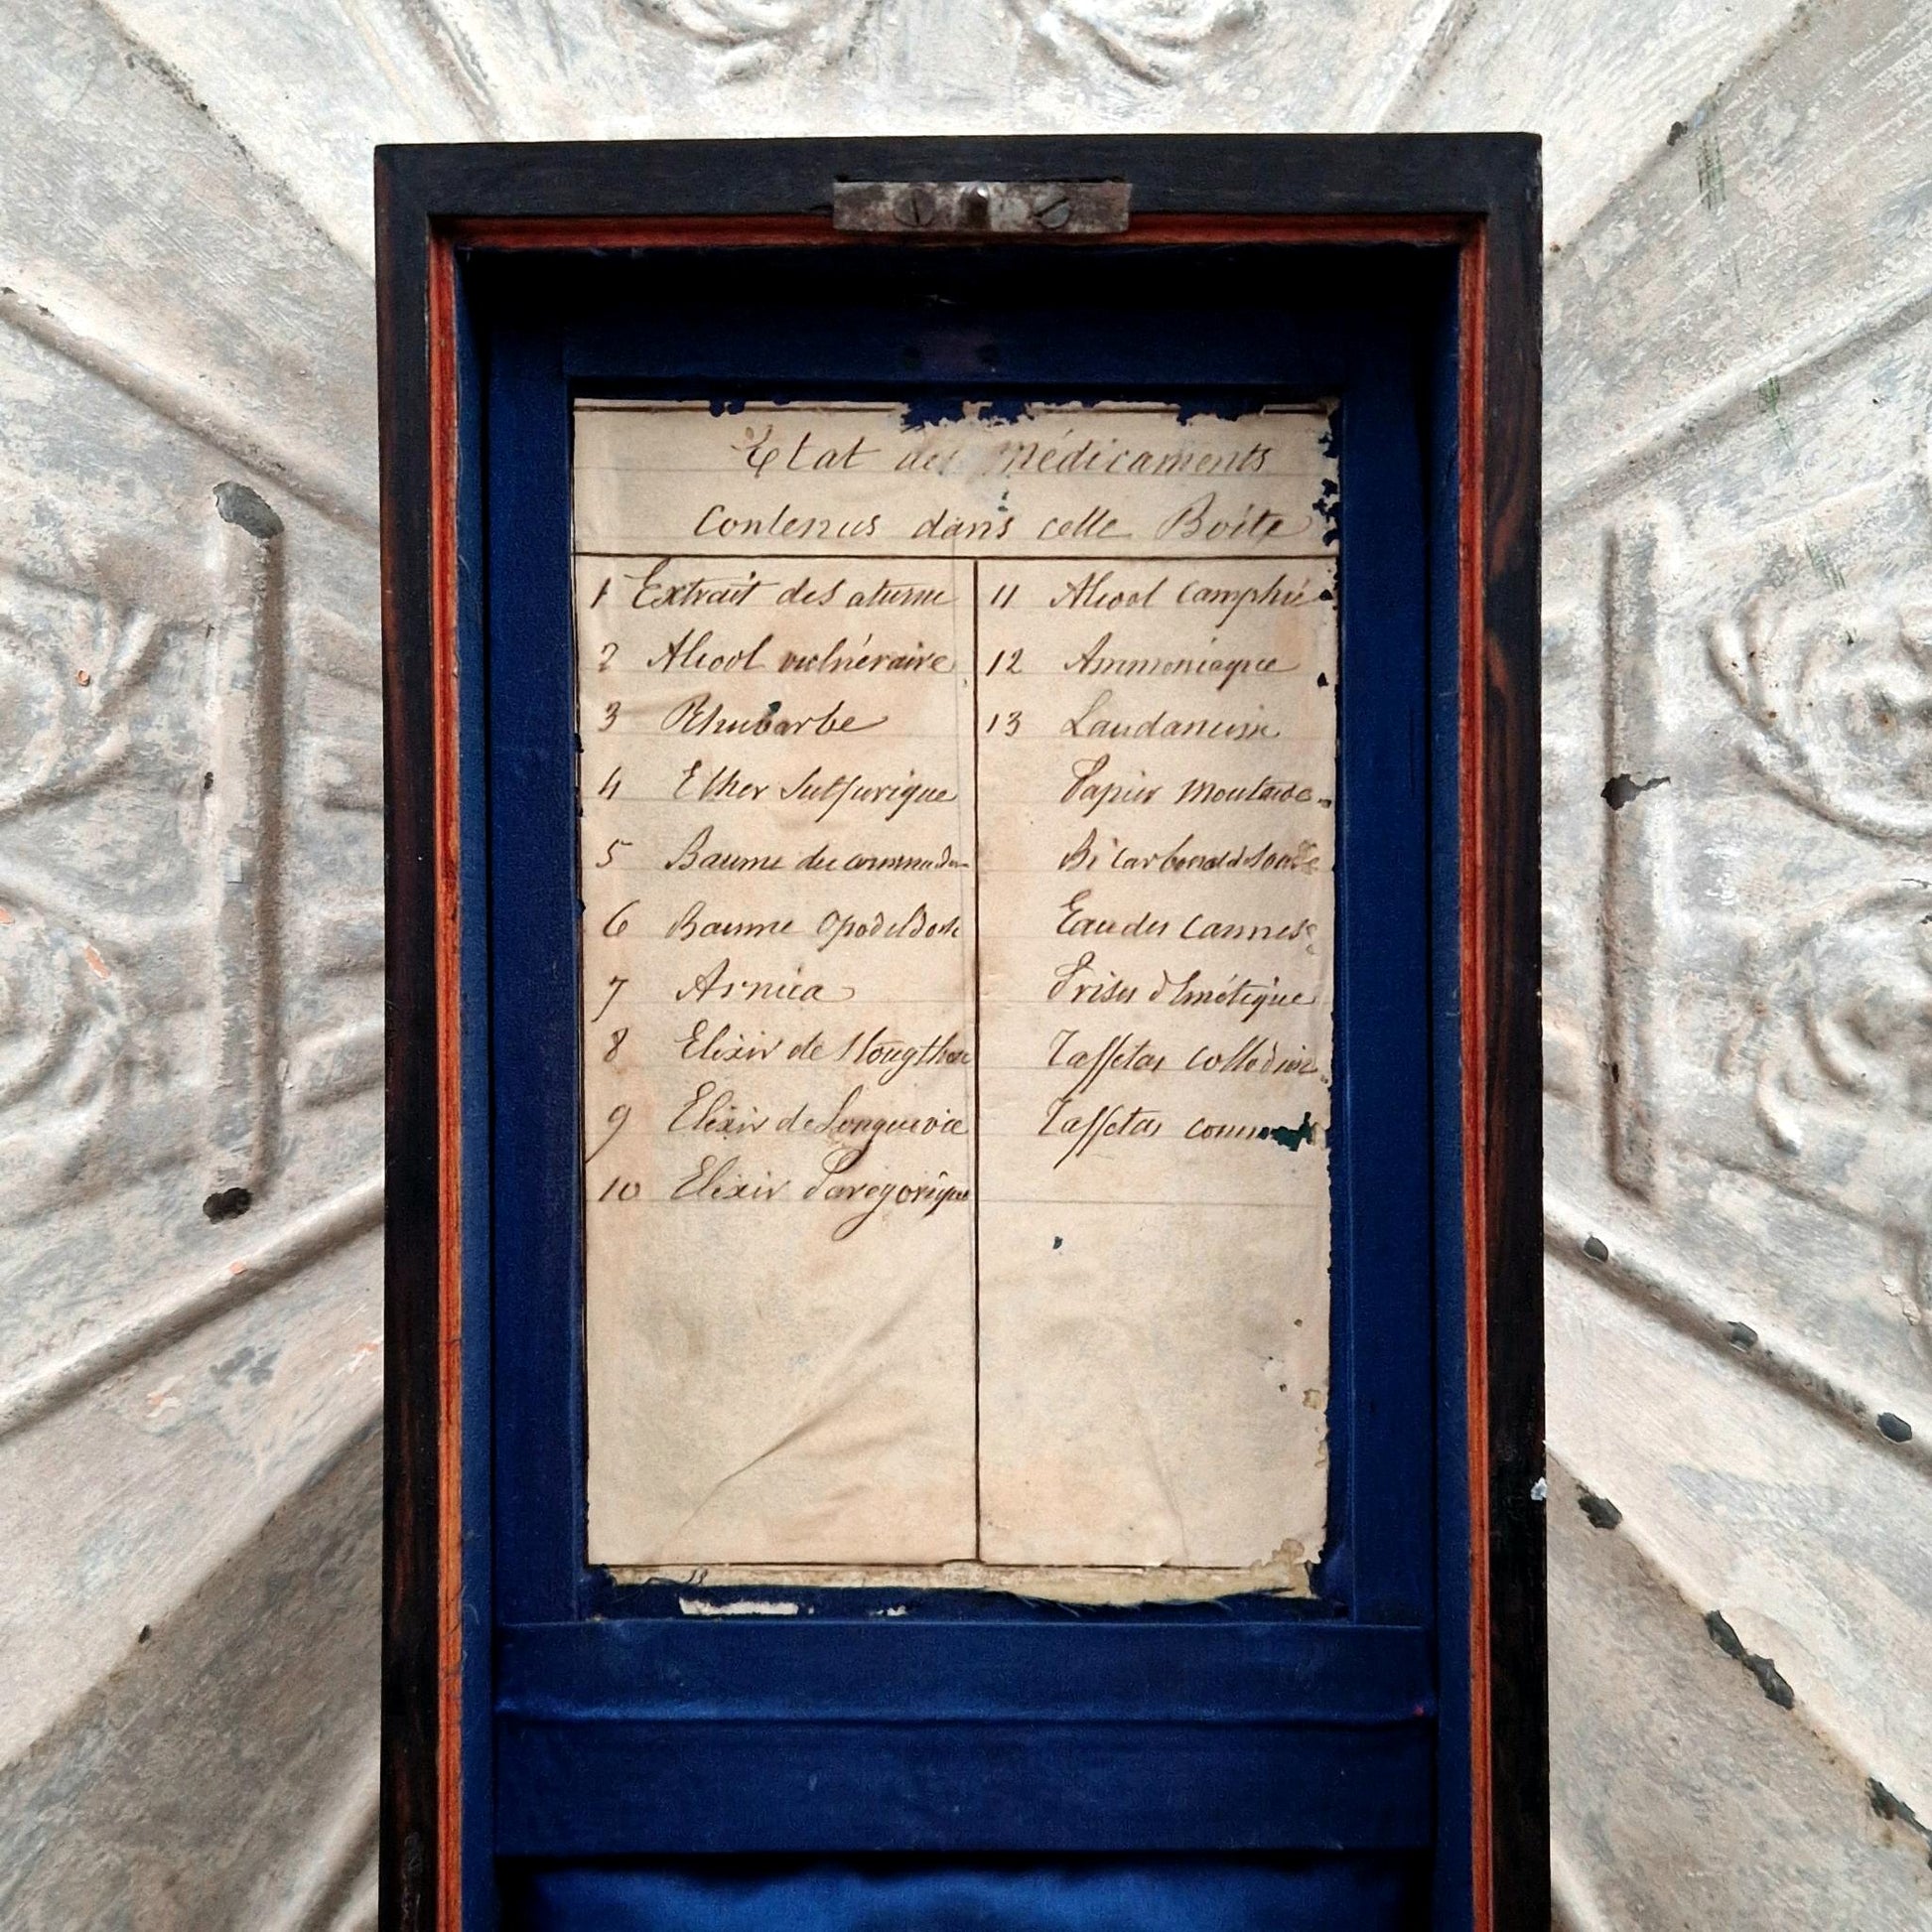 Etat des Médicaments
Contenus dans cette Boîte
1 Extrait de Saturne
2 Alcool vulnéraire
3 Rhubarbe
4 Ether Sulfurique
5 Baume du
6 Baume Opodeldoch
7 Arnica
8 Elixir de
9 Elixir de Longuevie
10 Elixir Parégorique
11 Alcool Camphré
12 Ammoniaque
13 Laudanum
Papier Moutarde
Bi Carbonate de Soude
Eau des Carmes
Prises d'Emétique
Taffetas
Taffetas